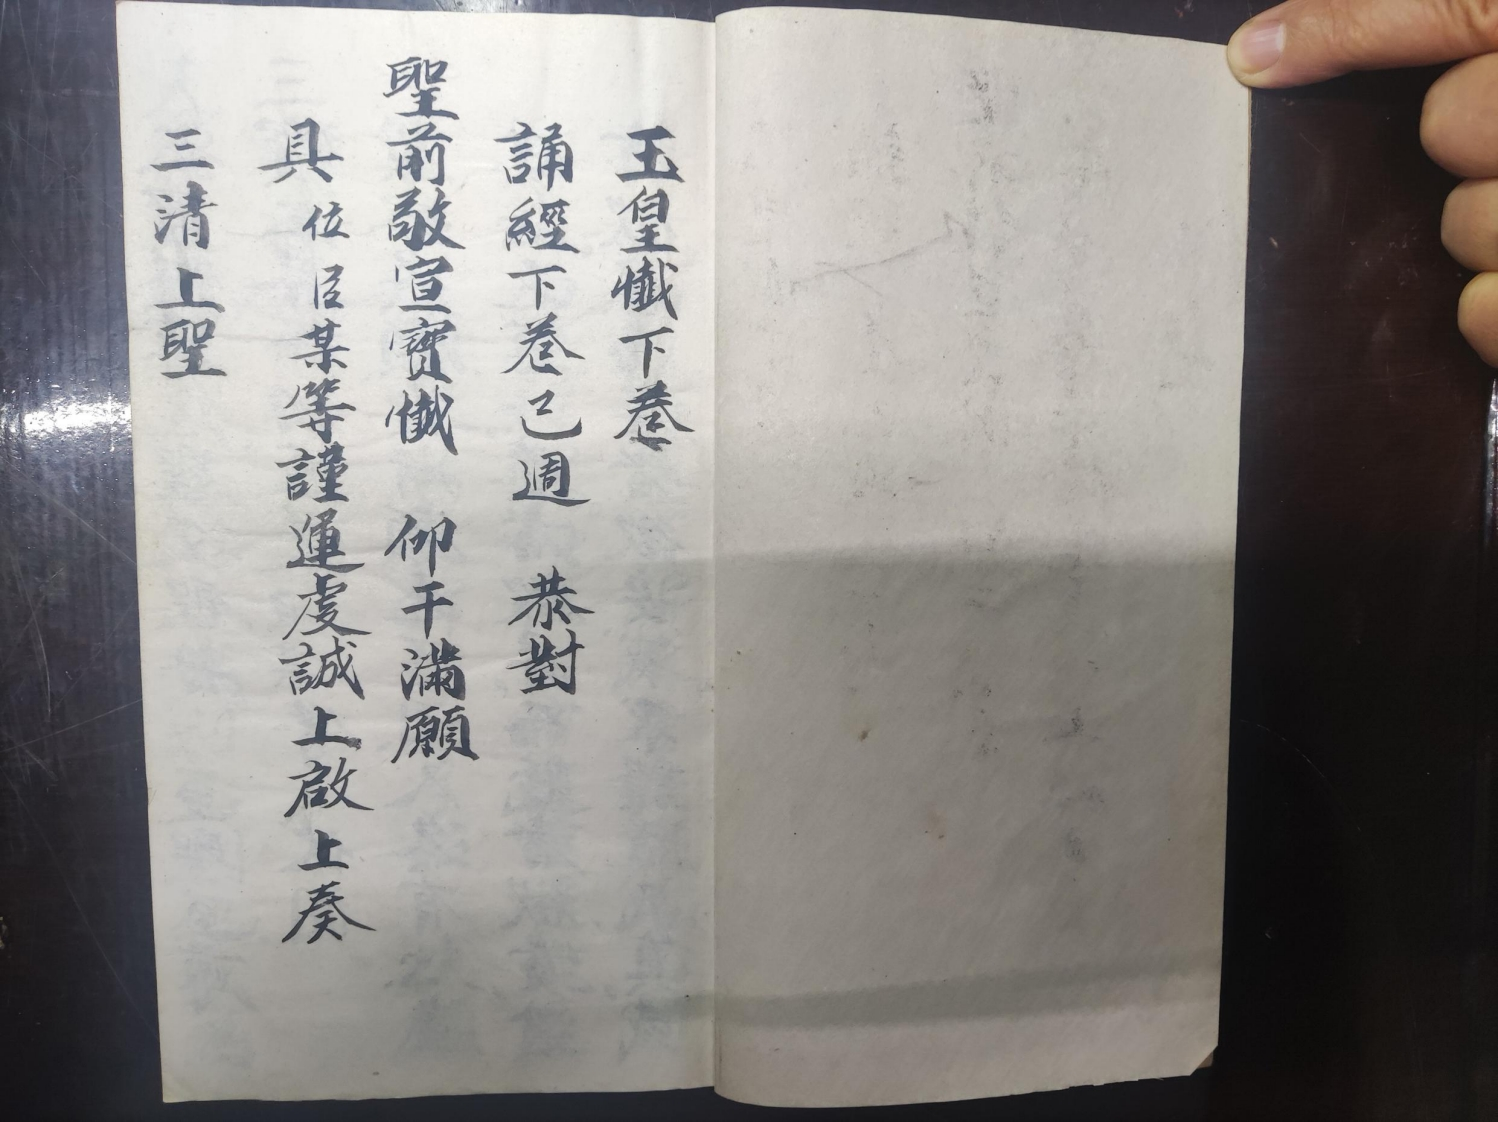 玉皇懺下卷
誦經下卷已週　恭對
聖前敬宣寶懺　仰干滿願
具位臣某等謹運虔誠上啟上奏
三清上聖